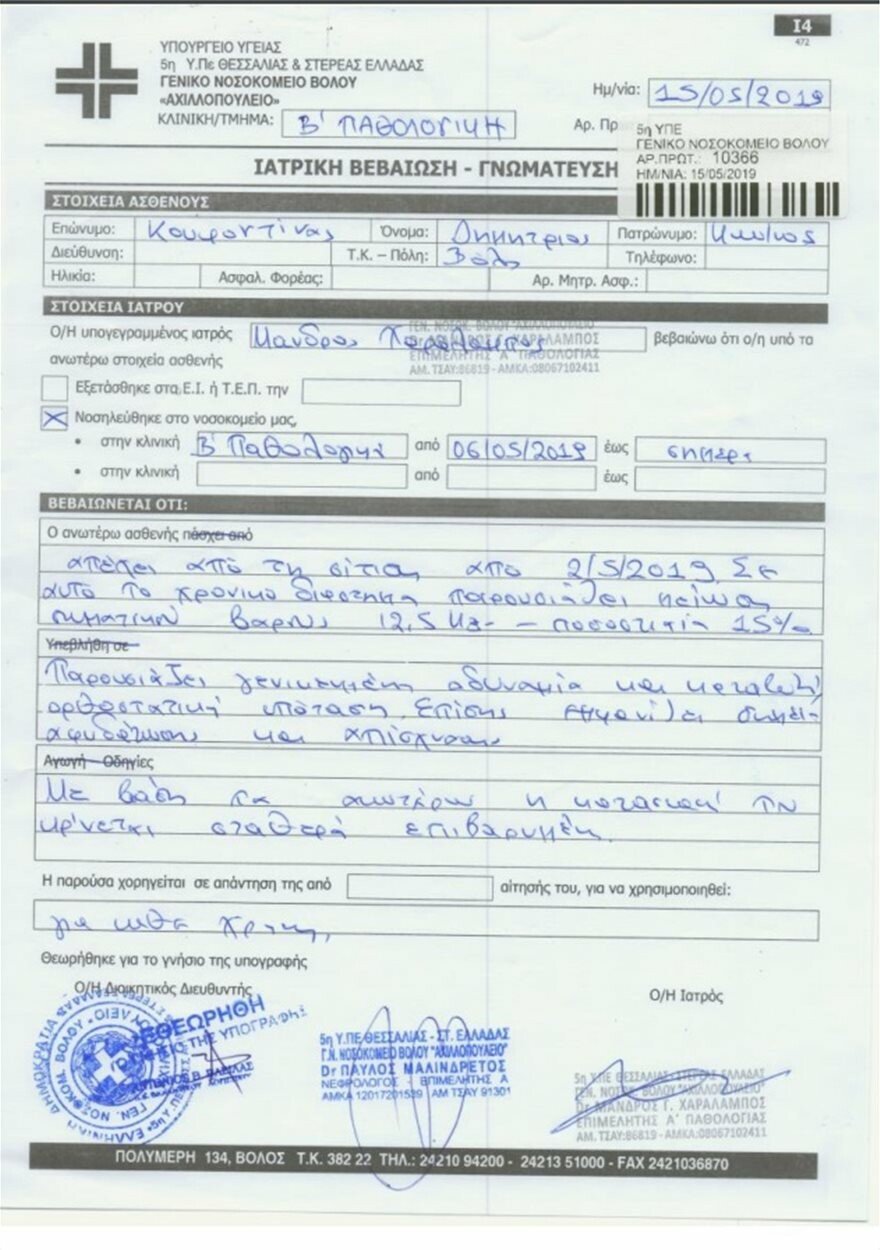 Ι4
472
ΥΠΟΥΡΓΕΙΟ ΥΓΕΙΑΣ
5η Υ.Πε ΘΕΣΣΑΛΙΑΣ & ΣΤΕΡΕΑΣ ΕΛΛΑΔΑΣ
ΓΕΝΙΚΟ ΝΟΣΟΚΟΜΕΙΟ ΒΟΛΟΥ
«ΑΧΙΛΛΟΠΟΥΛΕΙΟ»
ΚΛΙΝΙΚΗ/ΤΜΗΜΑ: Β' ΠΑΘΟΛΟΓΙΚΗ
Ημ/νία: 15/05/2019
Αρ. Πρ
5η ΥΠΕ
ΓΕΝΙΚΟ ΝΟΣΟΚΟΜΕΙΟ ΒΟΛΟΥ
ΑΡ.ΠΡΩΤ.: 10366
ΗΜ/ΝΙΑ: 15/05/2019
ΙΑΤΡΙΚΗ ΒΕΒΑΙΩΣΗ - ΓΝΩΜΑΤΕΥΣΗ
ΣΤΟΙΧΕΙΑ ΑΣΘΕΝΟΥΣ
Επώνυμο: Κουφοντίνας Όνομα: Δημήτριος Πατρώνυμο:
Διεύθυνση: Τ.Κ. – Πόλη: Βόλος Τηλέφωνο:
Ηλικία: Ασφαλ. Φορέας: Αρ. Μητρ. Ασφ.:
ΣΤΟΙΧΕΙΑ ΙΑΤΡΟΥ
Ο/Η υπογεγραμμένος ιατρός Μανδρος Χαράλαμπος βεβαιώνω ότι ο/η υπό τα
ΓΕΝ. ΝΟΣΟΚ. ΒΟΛΟΥ "ΑΧΙΛΛΟΠΟΥΛΕΙΟ"
ΕΠΙΜΕΛΗΤΗΣ Α' ΠΑΘΟΛΟΓΙΑΣ
ΑΜ.ΤΣΑΥ:86819 - ΑΜΚΑ:08067102411
ανωτέρω στοιχεία ασθενής
Εξετάσθηκε στα Ε.Ι. ή Τ.Ε.Π. την
Νοσηλεύθηκε στο νοσοκομείο μας,
• στην κλινική Β' Παθολογική από 06/05/2019 έως σήμερα
• στην κλινική από έως
ΒΕΒΑΙΩΝΕΤΑΙ ΟΤΙ:
Ο ανωτέρω ασθενής πάσχει από
απέχει από τη σίτιση από 2/5/2019 Σε
αυτό το χρονικό διάστημα παρουσιάζει μείωση
σωματικού βάρους 12,5 Kg - ποσοστιαία 15%
Υπεβλήθη σε
Παρουσιάζει γενικευμένη αδυναμία και
ορθοστατική υπόταση. Επίσης εμφανίζει σημεία
αφυδάτωσης και απίσχνασης
Αγωγή – Οδηγίες
Με βάση τα ανωτέρω η κατάστασή του
κρίνεται σταθερά επιβαρυμένη.
Η παρούσα χορηγείται σε απάντηση της από αίτησής του, για να χρησιμοποιηθεί:
για κάθε χρήση
Θεωρήθηκε για το γνήσιο της υπογραφής
Ο/Η Διοικητικός Διευθυντής
Ο/Η Ιατρός
ΕΘΕΩΡΗΘΗ
ΓΙΑ ΤΟ ΓΝΗΣΙΟ ΤΗΣ ΥΠΟΓΡΑΦΗΣ
5η Υ.ΠΕ ΘΕΣΣΑΛΙΑΣ - ΣΤ. ΕΛΛΑΔΑΣ
Γ.Ν. ΝΟΣΟΚΟΜΕΙΟ ΒΟΛΟΥ "ΑΧΙΛΛΟΠΟΥΛΕΙΟ"
Dr ΠΑΥΛΟΣ ΜΑΛΙΝΔΡΕΤΟΣ
ΝΕΦΡΟΛΟΓΟΣ - ΕΠΙΜΕΛΗΤΗΣ Α
ΑΜΚΑ 12017201539 ΑΜ ΤΣΑΥ 91301
5η Υ.ΠΕ ΘΕΣΣΑΛΙΑΣ - ΣΤΕΡΕΑΣ ΕΛΛΑΔΑΣ
ΓΕΝ. ΝΟΣΟΚ. ΒΟΛΟΥ "ΑΧΙΛΛΟΠΟΥΛΕΙΟ"
Dr ΜΑΝΔΡΟΣ Γ. ΧΑΡΑΛΑΜΠΟΣ
ΕΠΙΜΕΛΗΤΗΣ Α' ΠΑΘΟΛΟΓΙΑΣ
ΑΜ.ΤΣΑΥ:86819 - ΑΜΚΑ:08067102411
ΠΟΛΥΜΕΡΗ 134, ΒΟΛΟΣ Τ.Κ. 382 22 ΤΗΛ.: 24210 94200 - 24213 51000 - FAX 2421036870